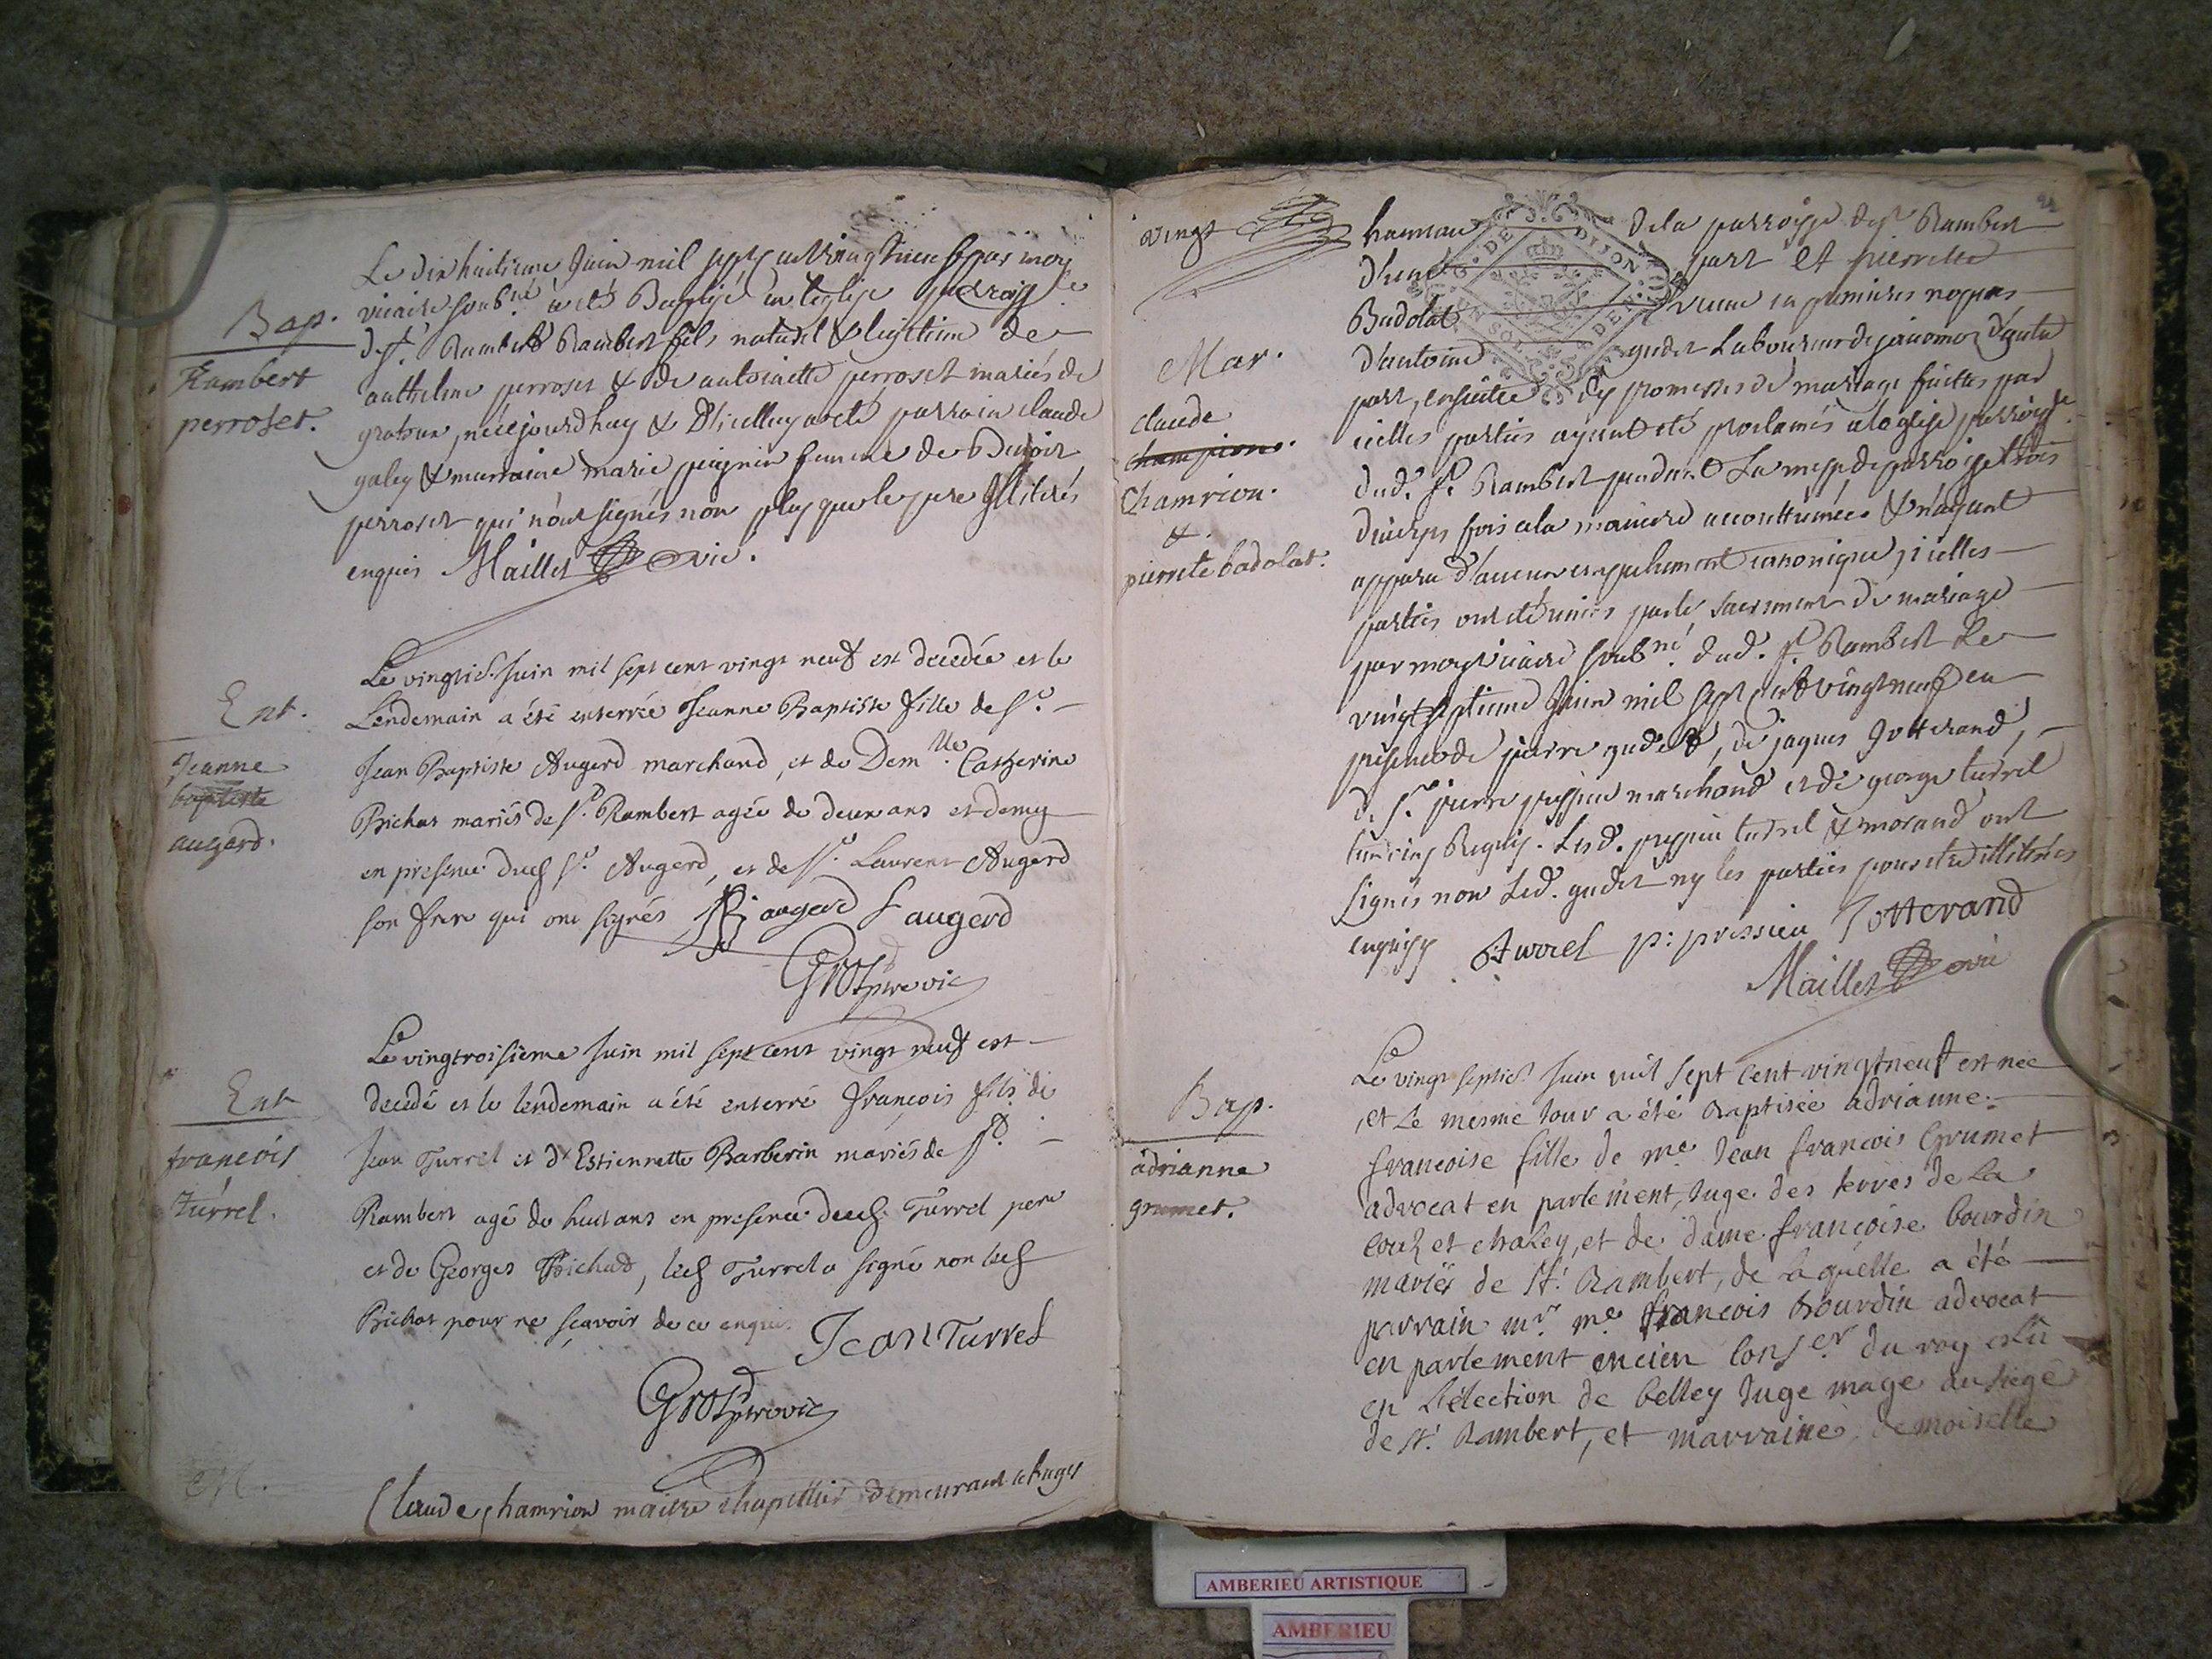 Bap.
Rambert
perroset.
Le dix huitieme Juin mil sept cent vingt neuf par moy
vicaire soub.né a eté Baptisé en l'eglise parroisle
de st. Rambert Rambert fils naturel & legitime de
anthelme perroset & de antoinette perroset mariés de
né cejourdhuy & D'icelluy a eté parrain claude
galey & marraine marie femme de Benoit
perroset qui n'ont signés non plus que le pere Illiterés
enquis Maillet vic.
Ent.
Jeanne
baptiste
augerd.
Le vingtie. Juin mil sept cent vingt neuf est decedée et le
Lendemain a été enterrée Jeanne Baptiste fille de sr.
Jean Baptiste Augerd marchand, et de Demlle. Catherine
Bichat mariés de st. Rambert agée de deux ans et demy
en presence dud sr. Augerd, et de sr. Laurent Augerd
son frere qui ont signés augerd L augerd
Gros pre vic
Ent
francois
turrel.
Le vingtroisieme Juin mil sept cent vingt neuf est
decedé et le lendemain a été enterré françois fils de
Jean Turrel et d'Estiennette Barberin mariés de st.
Rambert agé de huit ans en presence dud. Turrel pere
et de Georges Bichat, led Turrel a signé non led
Bichat pour ne sçavoir de ce enquis.
Jean Turrel
Gros pre vic
Claude chamrion maitre chapellier demeurant
vingt
Mar.
claude
champion.
Chamrion.
&.
pierrete badolat.
hameau de la parroisse de st Rambert
d'une part et pierrette
Badolat veuve en premieres nopces
d'antoine gudet Laboureur de d'autre
part, ensuitte des promesses de mariage faittes par
icelles parties ayant eté proclamés a leglise parroisle
dud. st. Rambert pendant La messe de parroisse trois
diverses fois a la maniere accouttumée & n'ayant
apparu d'aucun empechement canonique, icelles
parties ont eté unies par le sacrement de mariage
par moy vicaire soubné. dud. st. Rambert Le
vingt septieme Juin mil sept cent vingt neuf en
presence de pierre gudet, de jaques Jotterand,
d. sr. pierre pressieu marchand et de george turrel
temoins Requis. Lesd. pressieu turrel & morand ont
signés non Led. gudet ny les parties pour etre illiterés
enquis Turrel p: pressieu Jotterand
Maillet vic
Bap.
adrianne
grumet.
Le vingt septie. Juin mil sept cent vingt neuf est née
, et Le mesme Jour a été Baptisée adrianne
francoise fille de me Jean francois Grumet
advocat en parlement, Juge des terres de La
et chaley, et de dame francoise bourdin
mariés de st. Rambert, de Laquelle a été
parrain mr. me francois Bourdin advocat
en parlement encien conser du roy eslu
en L'élection de belley Juge mage au siege
de st. Rambert, et marraine demoiselle
G. DE DIJON
AMBERIEU ARTISTIQUE
AMBERIEU